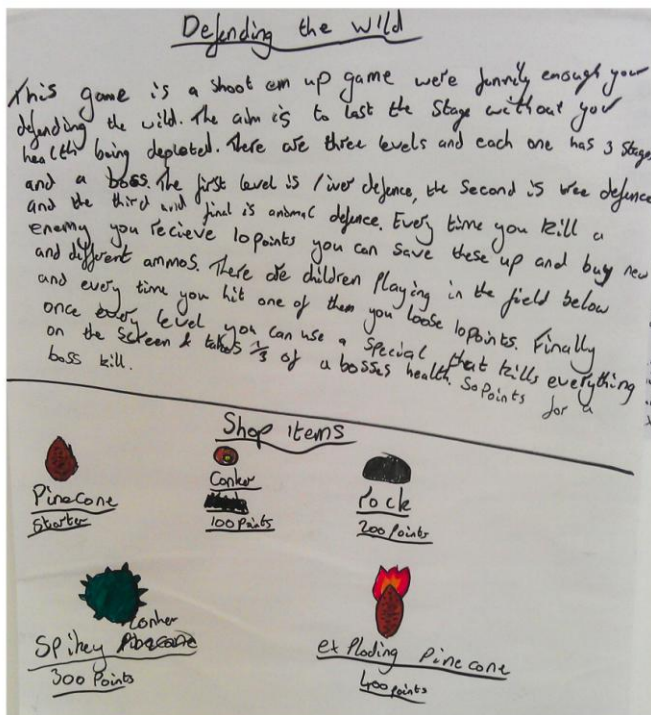 Defending the wild
This game is a shoot em up game were funnily enough your
defending the wild. The aim is to last the stage without your
health being depleted. There are three levels and each one has 3 stages
and a boss. The first level is river defence, the second is tree defence
and the third and final is animal defence. Every time you kill a
enemy you recieve 10points you can save these up and buy new
and different ammos. There are children playing in the field below
and every time you hit one of them you loose 10points. Finally
once every level you can use a special that kills everything
on the screen & takes 1/3 of a bosses health. 50points for a
boss kill.
Shop items
Pinecone
Starter
Conker
100 points
rock
200 points
Spikey Conker
300 points
exploding pinecone
400 points